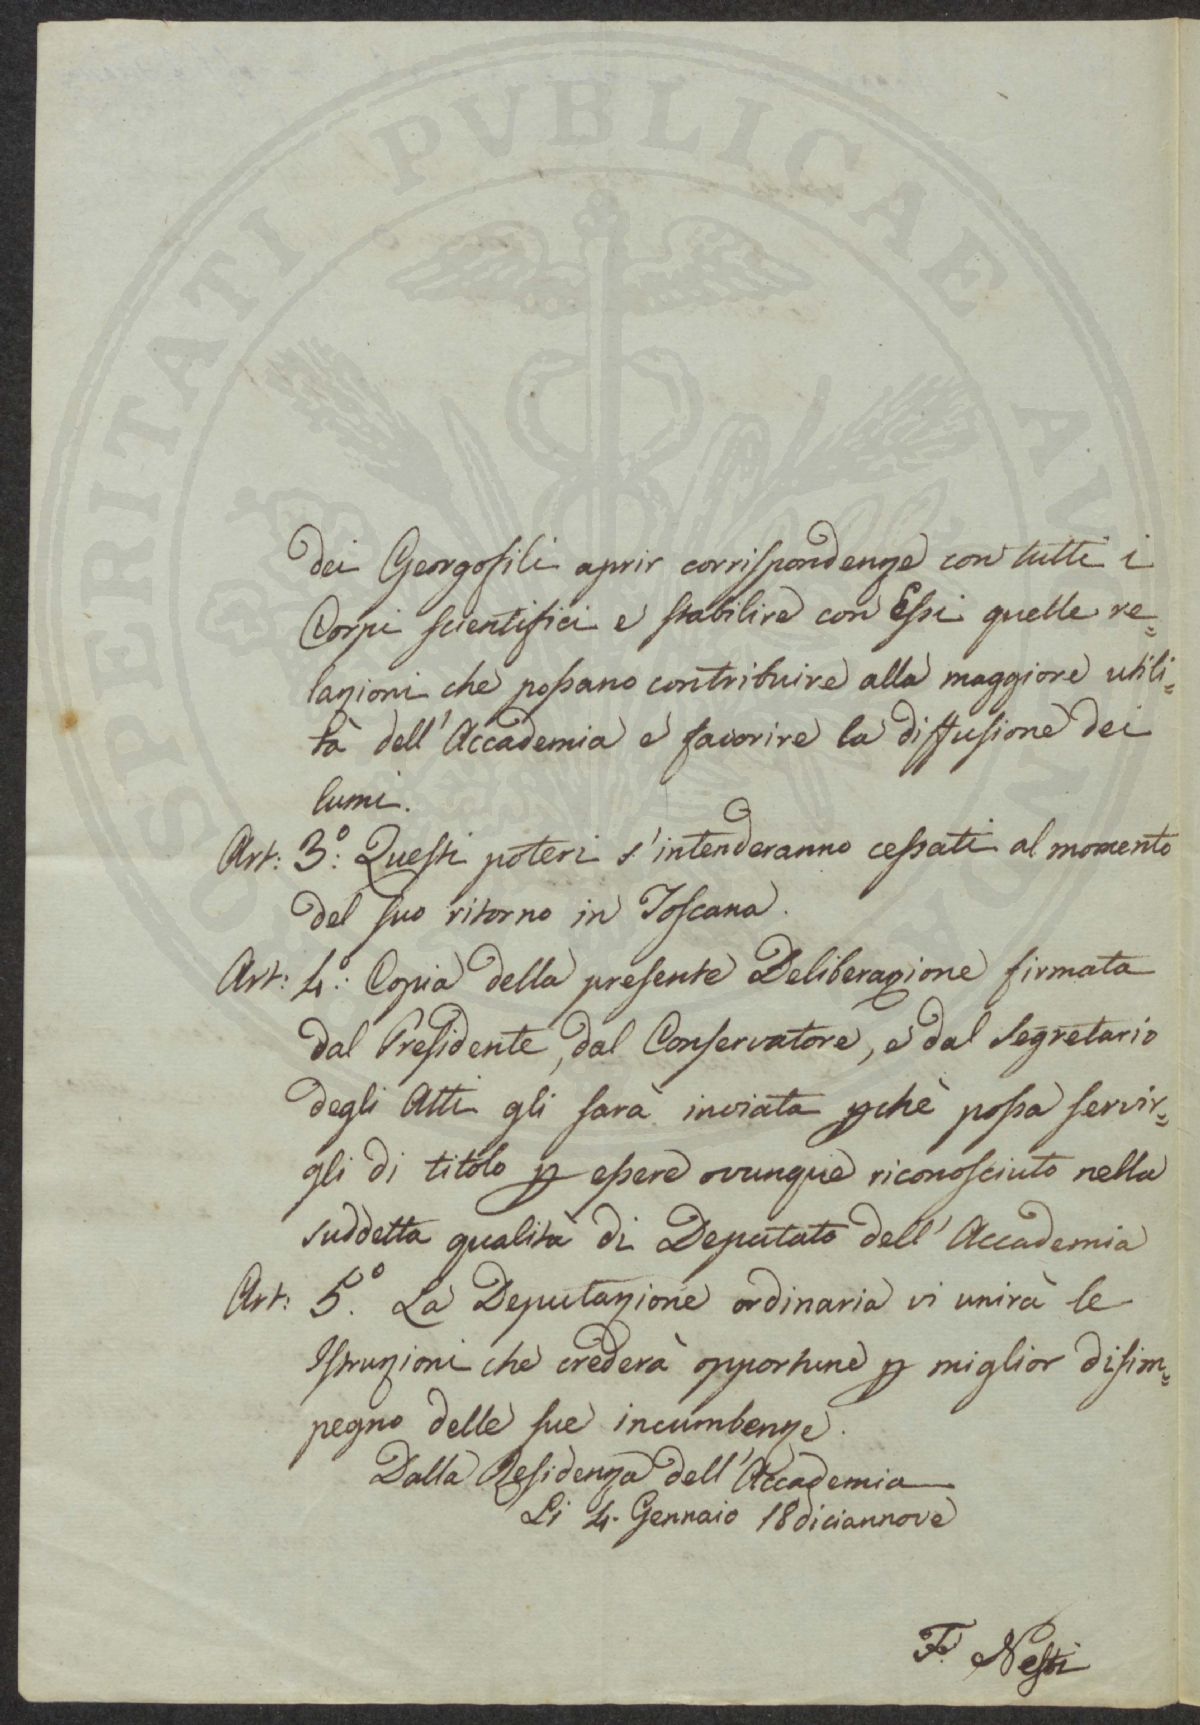 PROSPERITATI PVBLICAE AVGENDAE
dei Georgofili aprir corrispondenze con tutti i
Corpi scientifici e stabilire con Essi quelle re=
lazioni che possano contribuire alla maggiore utili=
tà dell'Accademia e favorire la diffusione dei
lumi.
Art: 3°: Questi poteri s'intenderanno cessati al momento
del suo ritorno in Toscana.
Art: 4°: Copia della presente Deliberazione firmata
dal Presidente, dal Conservatore, e dal Segretario
degli Atti gli sarà inviata pchè possa servir=
gli di titolo p essere ovunque riconosciuto nella
suddetta qualità di Deputato dell'Accademia
Art: 5°. La Deputazione ordinaria vi unirà le
Istruzioni che crederà opportune p miglior disim=
pegno delle sue incumbenze.
Dalla Residenza dell'Accademia
Li 4. Gennaio 18diciannove
F. Nesti